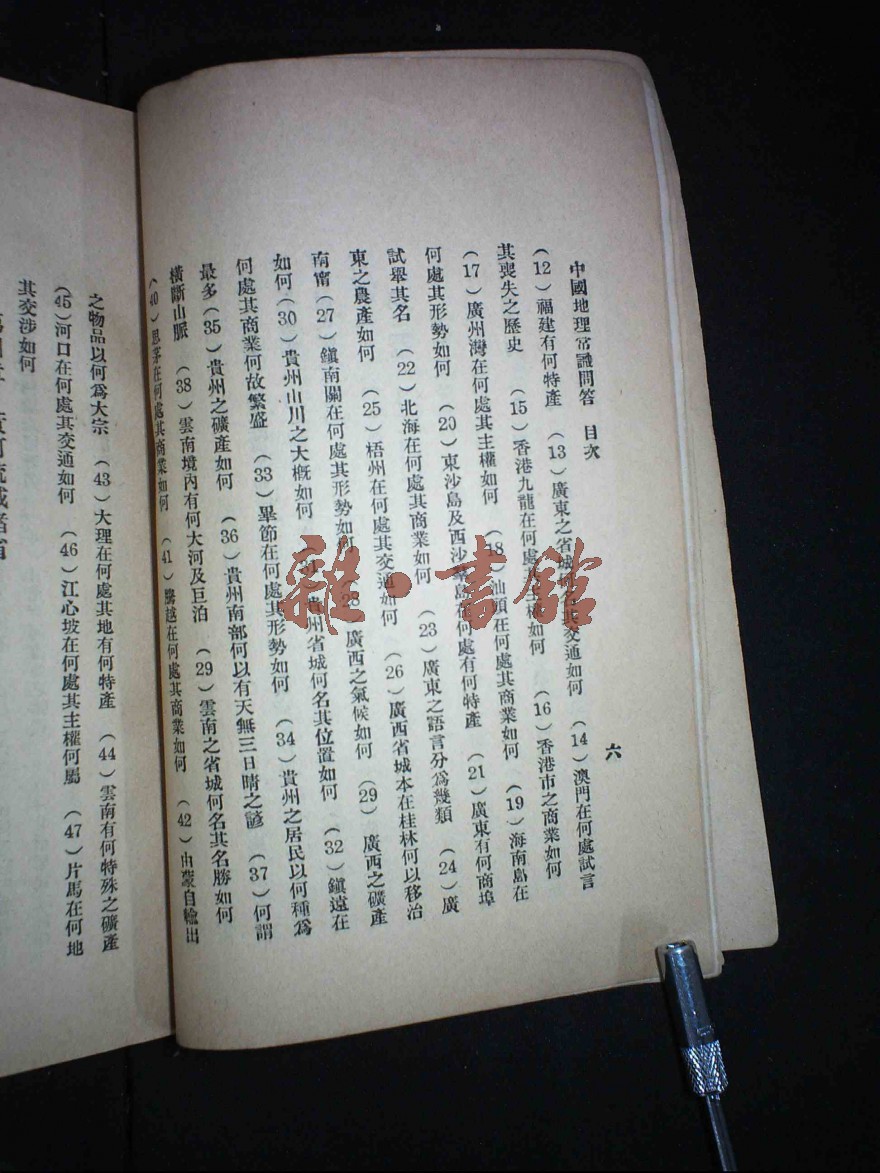 中國地理常識問答 目次
六
(12)福建有何特產 (13)廣東之省城何名其交通如何 (14)澳門在何處試言
其喪失之歷史 (15)香港九龍在何處其主權如何 (16)香港市之商業如何
(17)廣州灣在何處其主權如何 (18)汕頭在何處其商業如何 (19)海南島在
何處其形勢如何 (20)東沙島及西沙羣島在何處有何特產 (21)廣東有何商埠
試舉其名 (22)北海在何處其商業如何 (23)廣東之語言分爲幾類 (24)廣
東之農產如何 (25)梧州在何處其交通如何 (26)廣西省城本在桂林何以移治
南甯 (27)鎭南關在何處其形勢如何 (28)廣西之氣候如何 (29)廣西之礦產
如何 (30)貴州山川之大槪如何 (31)貴州省城何名其位置如何 (32)鎭遠在
何處其商業何故繁盛 (33)畢節在何處其形勢如何 (34)貴州之居民以何種爲
最多 (35)貴州之礦產如何 (36)貴州南部何以有天無三日晴之諺 (37)何謂
橫斷山脈 (38)雲南境內有何大河及巨泊 (29)雲南之省城何名其名勝如何
(40)思茅在何處其商業如何 (41)騰越在何處其商業如何 (42)由蒙自輸出
之物品以何爲大宗 (43)大理在何處其地有何特產 (44)雲南有何特殊之礦產
(45)河口在何處其交通如何 (46)江心坡在何處其主權何屬 (47)片馬在何地
其交涉如何
雜·書館